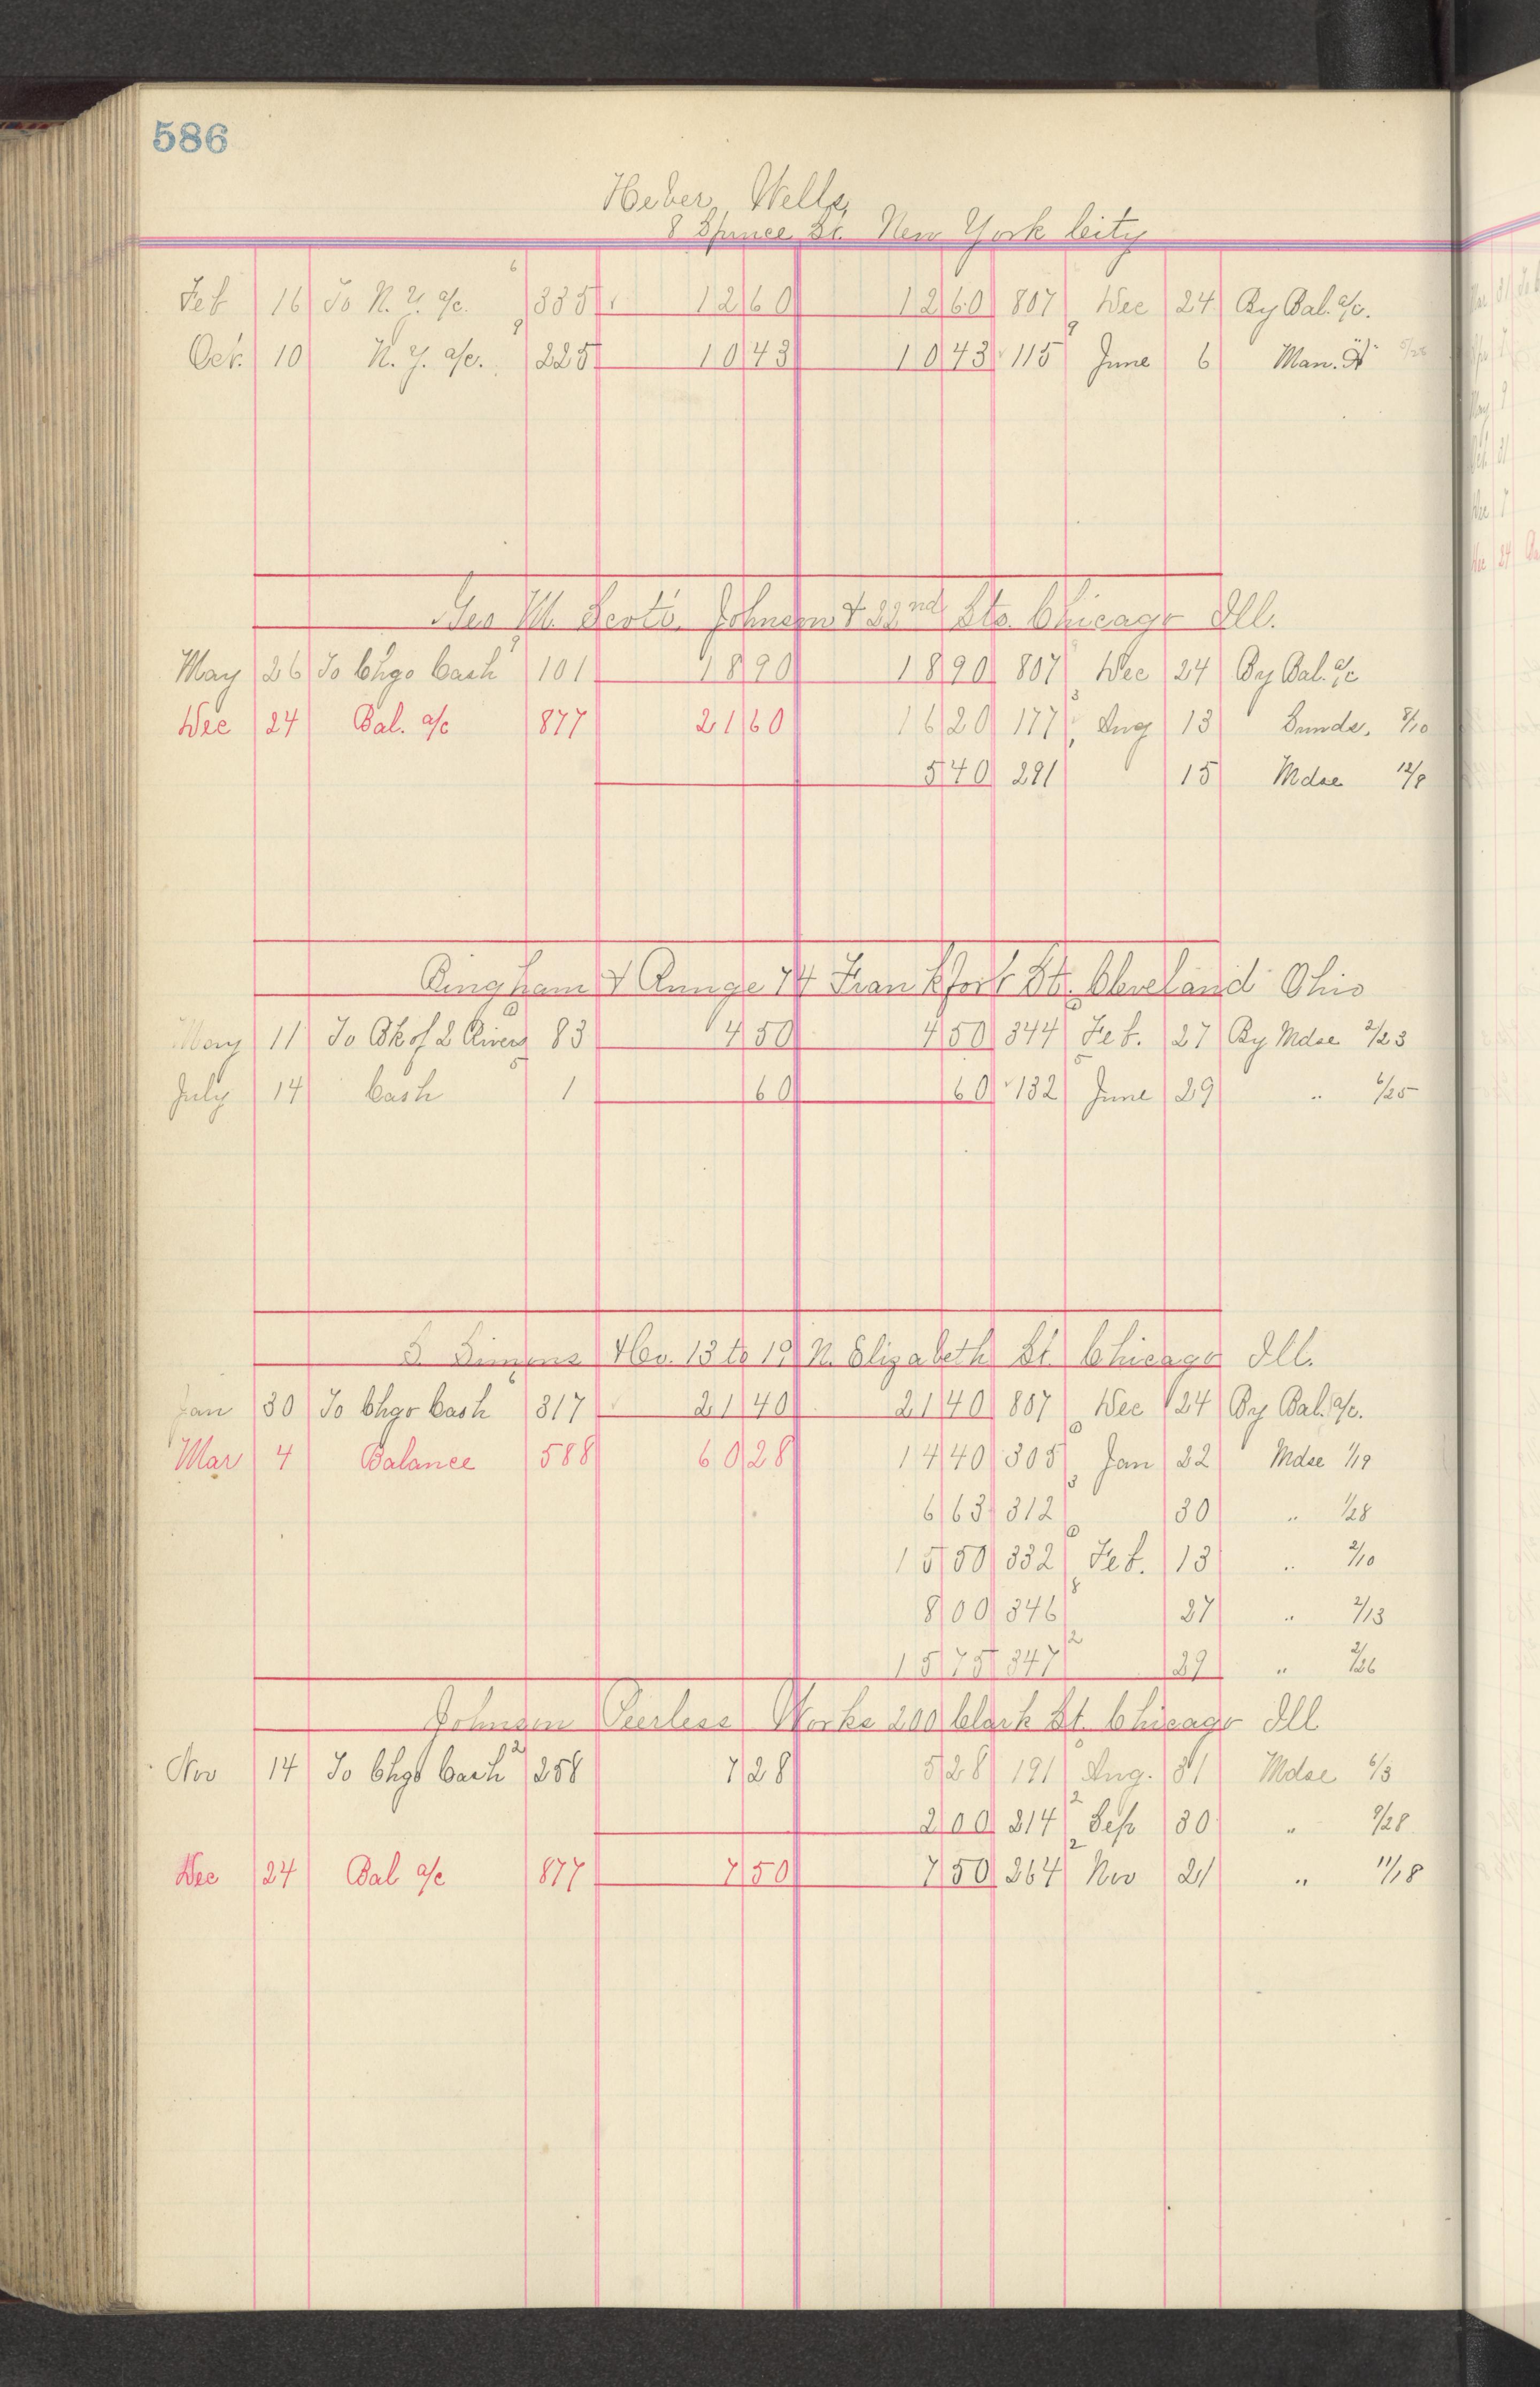 586
Heber Wells,
8 Spruce St. New York City
Feb 16 To N. Y. a/c. 335 12 60 12 60 807 Dec 24 By Bal. a/c.
Oct. 10 N. Y. a/c. 225 10 43 10 43 115 June 6 Man.
Geo M. Scott. Johnson & 22nd Sts. Chicago Ill.
May 26 To Chgo Cash 101 18 90 18 90 807 Dec 24 By Bal. a/c
Dec 24 Bal. a/c 877 21 60 16 20 177 Aug 13 Sunds. 8/10
5 40 291 15 Mdse 12/8
Bingham & Runge 74 Frankfort St. Cleveland Ohio
May 11 To Bk of 2 Rivers 83 4 50 4 50 344 Feb. 27 By Mdse 2/23
July 14 Cash 1 60 60 132 June 29 " 6/25
S Simons 13 to 19 N. Elizabeth St. Chicago Ill.
Jan 30 To Chgo Cash 317 21 40 21 40 807 Dec 24 By Bal. a/c.
Mar 4 Balance 588 60 28 14 40 305 Jan 22 Mdse 1/19
6 63 312 30 " 1/28
15 50 332 Feb. 13 " 2/10
8 00 346 27 " 2/13
15 75 347 29 " 2/26
Johnson Peerless Works 200 Clark St. Chicago Ill
Nov 14 To Chgo Cash 258 7 28 5 28 191 Aug. 31 Mdse 6/3
2 00 214 Sep 30 " 9/28
Dec 24 Bal a/c 877 7 50 7 50 264 Nov 21 " 11/18